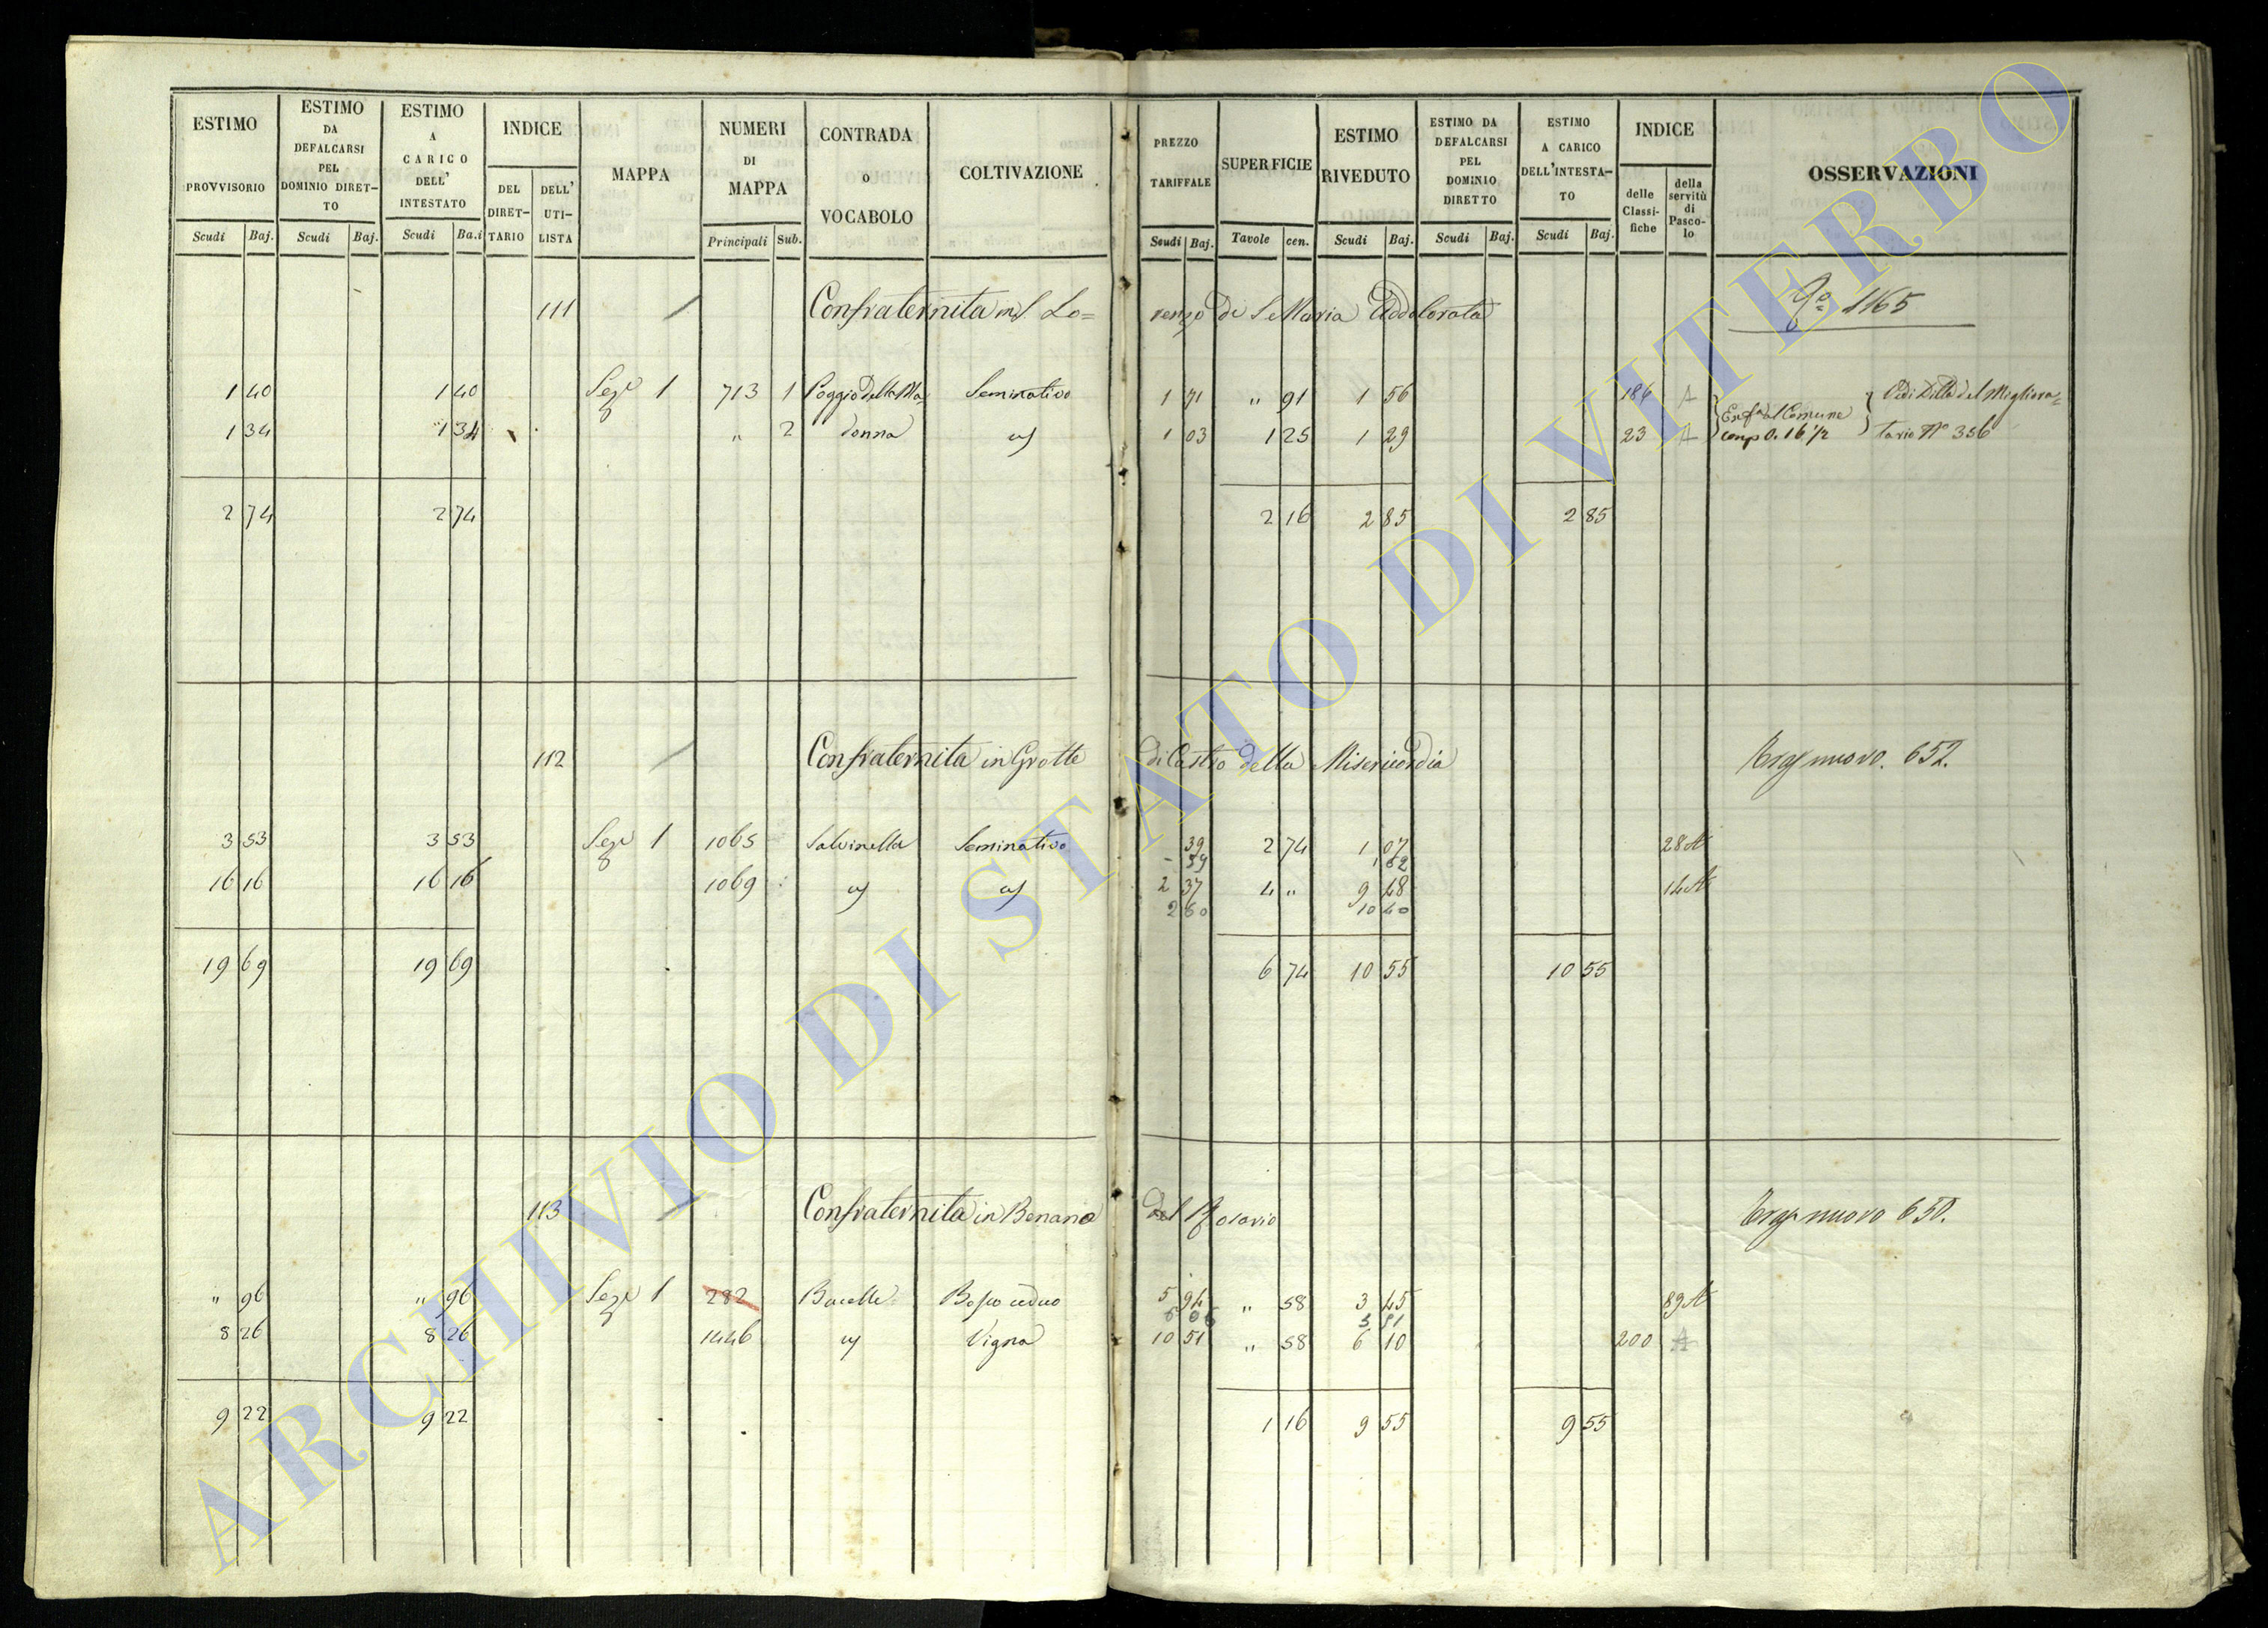 ESTIMO PROVVISORIO Scudi Baj. | ESTIMO DA DEFALCARSI PEL DOMINIO DIRET-TO Scudi Baj. | ESTIMO A CARICO DELL' INTESTATO Scudi Ba.i | INDICE DEL DIRET-TARIO DELL' UTI-LISTA | MAPPA | NUMERI DI MAPPA Principali Sub. | CONTRADA o VOCABOLO | COLTIVAZIONE | PREZZO TARIFFALE Scudi Baj. | SUPERFICIE Tavole cen. | ESTIMO RIVEDUTO Scudi Baj. | ESTIMO DA DEFALCARSI PEL DOMINIO DIRETTO Scudi Baj. | ESTIMO A CARICO DELL'INTESTA-TO Scudi Baj. | INDICE delle Classi-fiche della servitù di Pasco-lo | OSSERVAZIONI
111 Confraternita in S. Lo= renzo di S. Maria Addolorata 1165
1 40 1 40 Sez.e 1 713 1 Poggio della Ma- Seminativo 1 71 " 91 1 56 184 A
1 34 1 34 " 2 donna 1 03 1 25 1 29 23 A
al Comune
O. 16 1/2
Vedi Ditta del Migliora=
tario N° 356
2 74 2 74 2 16 2 85 2 85
112 Confraternita in Grotte di Castro della Misericordia nuovo. 652.
3 53 3 53 Sez.e 1 1065 Salvinella Seminativo - 39 2 74 1 07 28 A
- 59 1 62
16 16 16 16 1069 2 37 4 " 9 48 14 A
2 60 10 40
19 69 19 69 6 74 10 55 10 55
113 Confraternita in Benano del Rosario nuovo 650.
" 96 " 96 Sez.e 1 282 Bucelle Bosco ceduo 5 94 " 58 3 45 89 A
8 26 8 26 1446 Vigna 10 51 " 58 6 10 200 A
9 22 9 22 1 16 9 55 9 55
ARCHIVIO DI STATO DI VITERBO